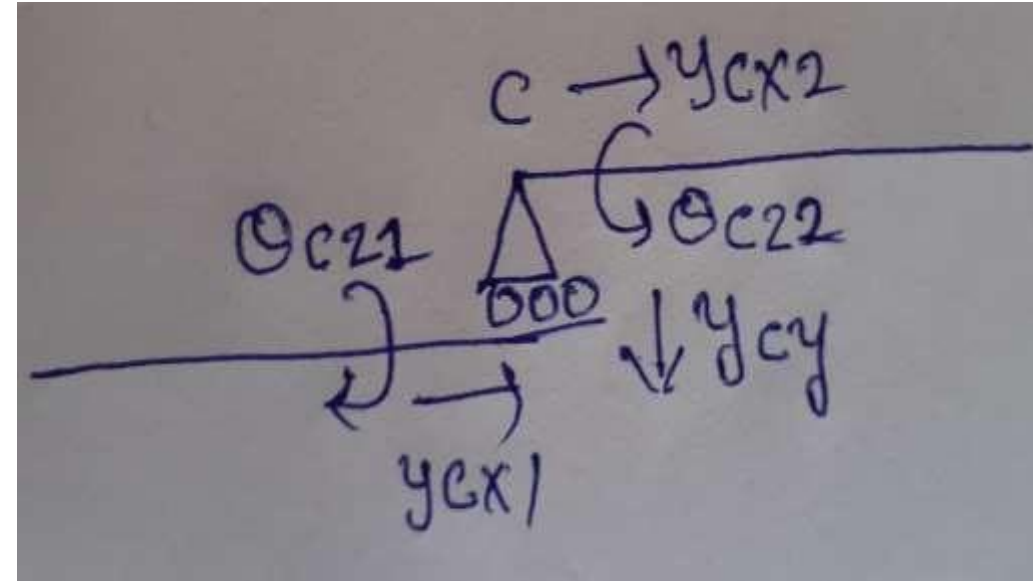 C → ycx2
θcz1
θcz2
ycy
ycx1